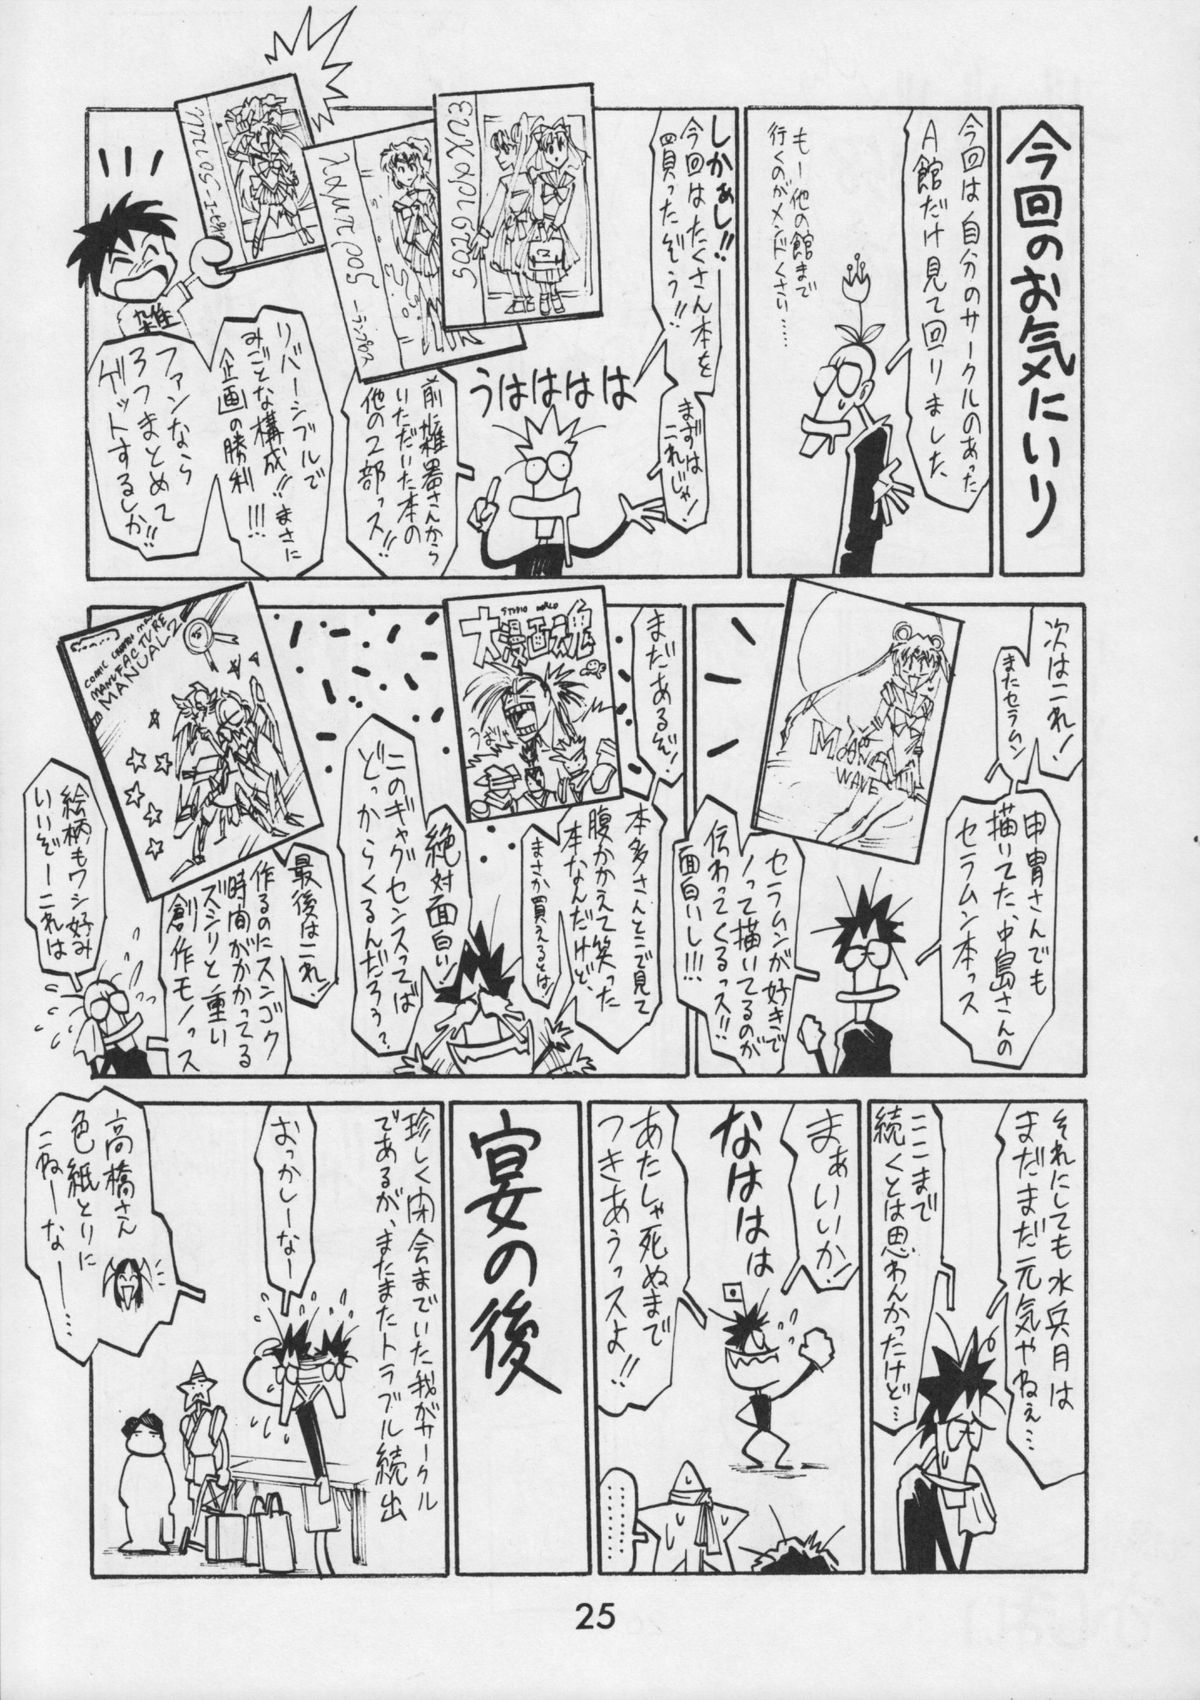 今回のお気にいり
今回は自分のサークルのあった
A館だけ見て回りました
もー他の館まで
行くのがメンドくさい……
しかぁし!!
今回はたくさん本を
買ったぞぅ!!
まずは
これじゃ!
うはははは
前に雑器さんから
いただいた本の
他の2部っス!!
リバーシブルで
みごとな構成!! まさに
企画の勝利!!!
ファンなら
3つまとめて
ゲットするしか!!
次はこれ!
またセラムン
甲冑さんでも
描いてた、中島さんの
セラムン本っス
MOON
WAVE
セラムンが好きで
ノって描いてるのが
伝わってくるっス!!
面白いし!!!
まだあるぞ!
本多さんとこで見て
腹かかえて笑った
本なんだけど、
まさか買えるとは
STUDIO WORLD
大漫画魂
絶対面白い!
このギャグセンスってば
どっからくるんだろう?
最後はこれ!
作るのにスンゴク
時間がかかってる
ズシリと重い
創作モノっス
MANUFACTURE
MANUAL 2
絵柄もワシ好み
いいぞーこれは
それにしても水兵月は
まだまだ元気やねぇ…
ここまで
続くとは思わんかったけど…
まぁいいか
なははは
あたしゃ死ぬまで
つきあうっスよ!!
宴の後
珍しく閉会までいた我がサークル
であるが、またまたトラブル続出
おっかしーなー
高橋さん
色紙とりに
こねーなー…
25